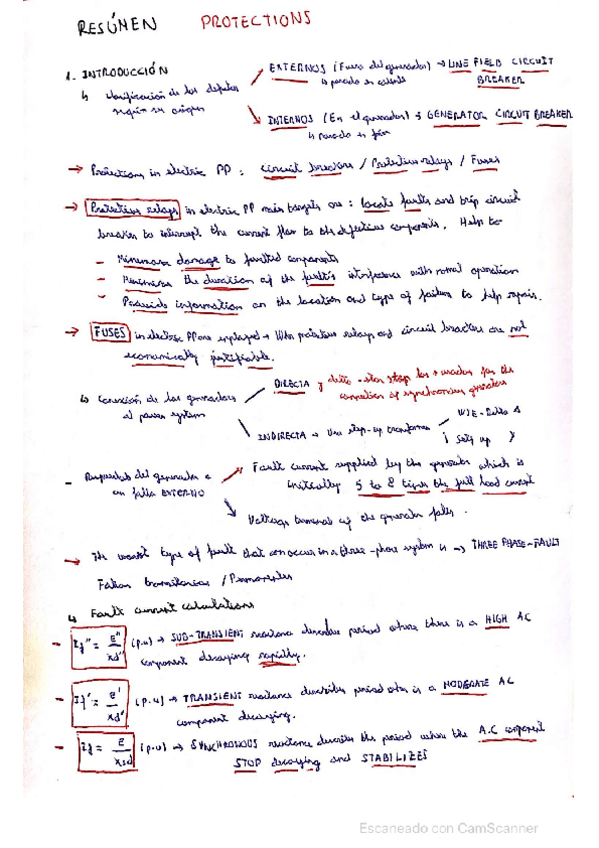 RESÚMEN PROTECTIONS
1. INTRODUCCIÓN
↳ Clasificación de los defectos según su origen
EXTERNOS (Fuera del generador) → LINE FIELD CIRCUIT BREAKER
↳ parada en caliente
INTERNOS (En el generador) → GENERATOR CIRCUIT BREAKER
↳ parada en frío
→ Protections in electric PP : Circuit breakers / Protective relays / Fuses
→ Protective relays in electric PP main targets are : locate faults and trip circuit
breaker to interrupt the current flow to the defective components. Help to:
- Minimize damage to faulted components
- Minimize the duration of the fault's interference with normal operation
- Provide information on the location and type of failure to help repair.
→ FUSES in electric PP are employed → When protective relays and circuit breakers are not
economically justifiable.
↳ Conexión de los generadores al power system
DIRECTA y delta - star step for the
connection of synchronous generators
INDIRECTA → Use step-up transformer
WYE - Delta Δ
Y
- Respuesta del generador a un falla EXTERNO
Fault current supplied by the generator which is
initially 5 to 8 times the full load current
Voltage terminal of the generator falls.
→ The worst type of fault that can occur in a three-phase system is → THREE PHASE-FAULT
Fallan transitorias / Permanentes
↳ Fault current calculations
- If'' = e'' / xd'' (p.u) → SUB-TRANSIENT reactance describe period where there is a HIGH AC
component decaying rapidly.
- If' = e' / xd' (p.u) → TRANSIENT reactance describes period when is a MODERATE AC
component decaying.
- If = e / xsd (p.u) → SYNCHRONOUS reactance describe the period where the A.C component
STOP decaying and STABILIZES
Escaneado con CamScanner